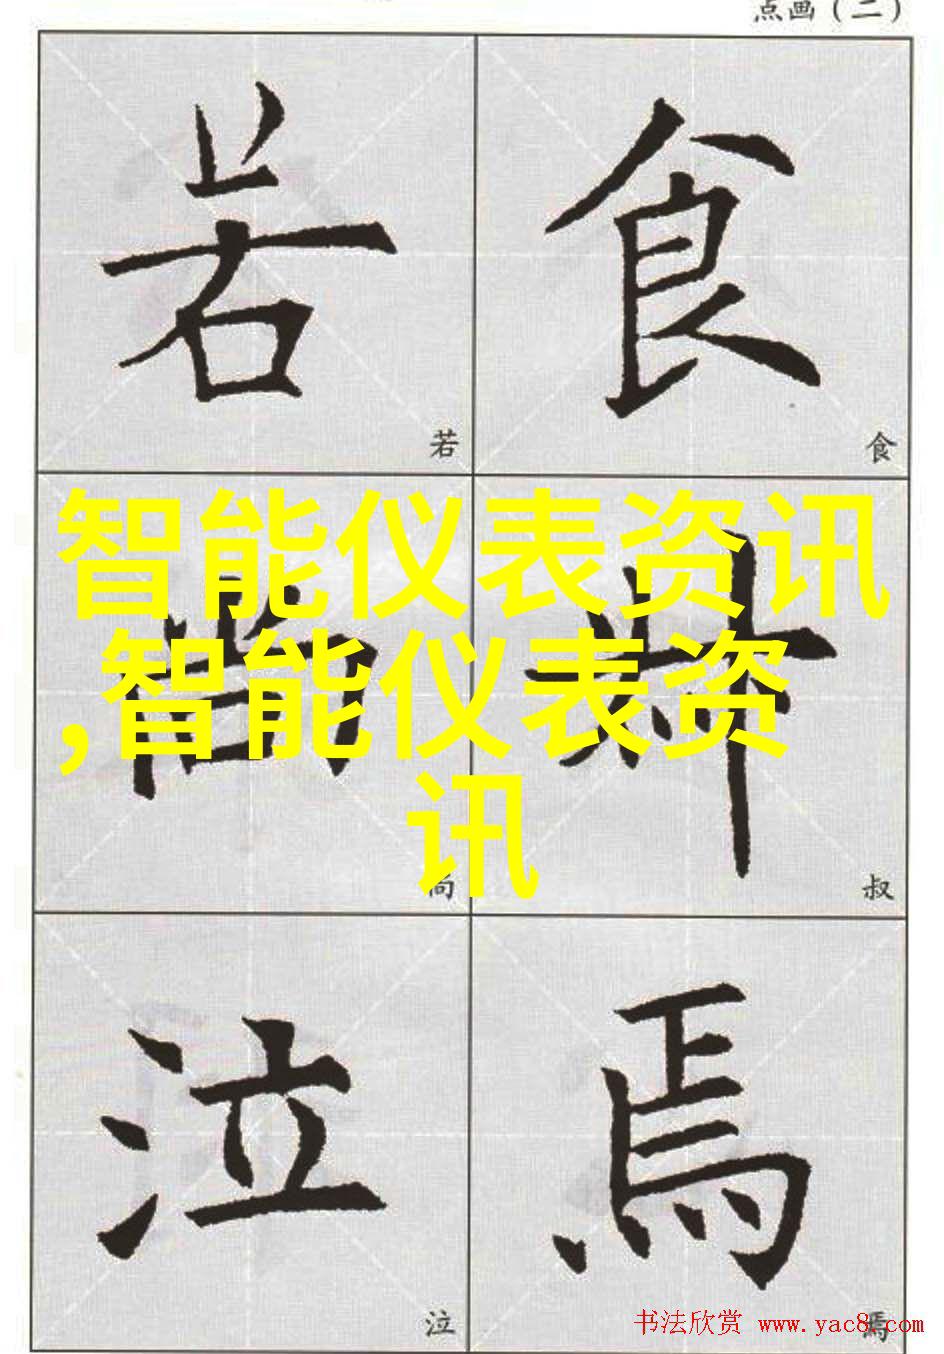 点画（二）
若 食
若 食
智能仪表资讯
,智能仪表资
讯
尚 叔
尚 叔
泣 焉
泣 焉
书法欣赏 www.yac8.com